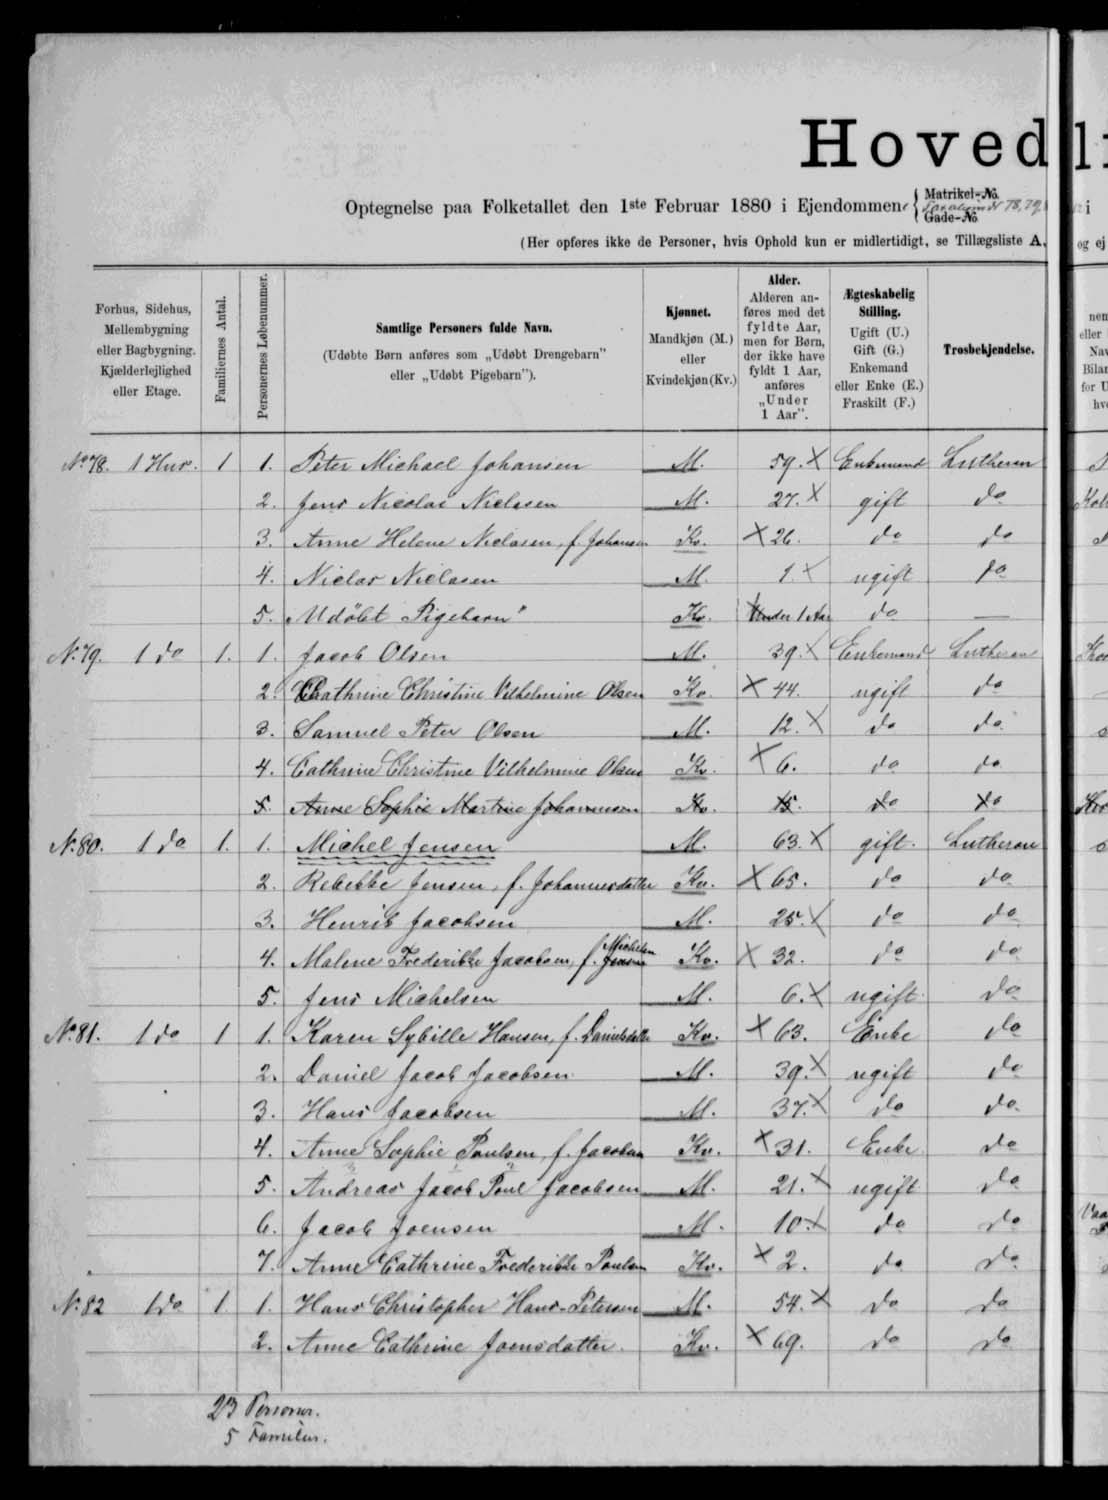 Hoved
Optegnelse paa Folketallet den 1ste Februar 1880 i Ejendommene { Matrikel-No. Taxations N 78, 79, Gade-No
(Her opføres ikke de Personer, hvis Ophold kun er midlertidigt, se Tillægsliste A.
Forhus, Sidehus, Mellembygning eller Bagbygning. Kjælderlejlighed eller Etage. | Familiernes Antal. | Personernes Løbenummer. | Samtlige Personers fulde Navn. (Udøbte Børn anføres som „Udøbt Drengebarn" eller „Udøbt Pigebarn"). | Kjønnet. Mandkjøn (M.) eller Kvindekjøn (Kv.) | Alder. Alderen anføres med det fyldte Aar, men for Børn, der ikke have fyldt 1 Aar, anføres „Under 1 Aar". | Ægteskabelig Stilling. Ugift (U.) Gift (G.) Enkemand eller Enke (E.) Fraskilt (F.) | Trosbekjendelse.
No 78. 1 Hus. 1 1. Peter Michael Johansen M. 59. X Enkemand Lutheran
2. Jens Nicolai Nielasen M. 27. X gift do
3. Anne Helene Nielasen, f. Johansen Kv. X 26. do do
4. Niclas Nielasen M. 1. X ugift do
5. „Udöbt Pigebarn" Kv. Under 1 Aar do —
No. 79. 1 do 1. 1. Jacob Olsen M. 39. X Enkemand Lutheran
2. Cathrine Christine Vilhelmine Olsen Kv. X 44. ugift do
3. Samuel Peter Olsen M. 12. X do do
4. Cathrine Christine Vilhelmine Olsen Kv. X 6. do do
5. Anne Sophie Martine Johannesen Kv. 15. do do
No. 80. 1 do 1. 1. Michel Jensen M. 63. X gift. Lutheran
2. Rebekke Jensen, f. Johannesdatter Kv. X 65. do do
3. Henrik Jacobsen M. 25. X do do
4. Malene Frederikke Jacobsen, f. Jensen Michelsen Kv. X 32. do do
5. Jens Michelsen M. 6. X ugift do
No. 81. 1 do 1 1. Karen Sybille Hansen, f. Danielsdatter Kv. X 63. Enke do
2. Daniel Jacob Jacobsen M. 39. X ugift do
3. Hans Jacobsen M. 37. X do do
4. Anne Sophie Poulsen, f. Jacobsen Kv. X 31. Enke do
5. Andreas Jacob Poul Jacobsen M. 21. X ugift do
6. Jacob Joensen M. 10. X do do
7. Anne Cathrine Frederikke Poulsen Kv. X 2. do do
No. 82 1 do 1 1. Hans Christopher Hans-Petersen M. 54. X do do
2. Anne Cathrine Joensdatter. Kv. X 69. do do
23 Personer.
5 Familier.